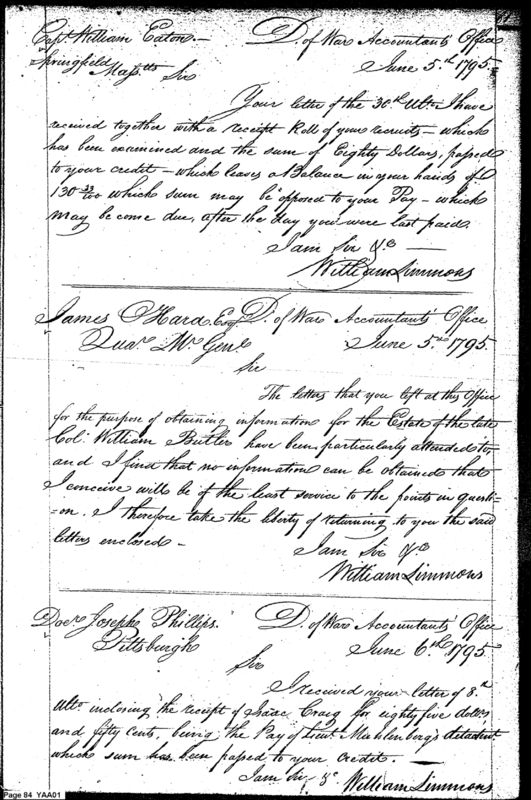 Capt. William Eaton.— D. of War Accountants Office
Springfield June 5.th 1795.
Massts Sir
Your letter of the 30th Ulto I have
received together with a receipt Roll of your recruits – which
has been examined and the sum of Eighty Dollars, passed
to your credit – which leaves a Balance in your hands of
130 33/100 which sum may be opposed to your Pay – which
may become due, after the day you were last paid.
I am Sir &c —
William Simmons
James OHara Esqr D. of War Accountants Office
Quar. Mr. Genl. June 5th 1795.
Sir
The letters that you left at this Office
for the purpose of obtaining information for the Estate of the late
Col: William Butler have been particularly attended to–
and I find that no information can be obtained that
I conceive will be of the least service to the points in questi-
=on. I therefore take the liberty of returning to you the said
letters enclosed –
I am Sir &c
William Simmons
Docr. Joseph Phillips. D. of War Accountants Office
Pittsburgh June 6.th 1795
Sir
I received your letter of 8.th
Ulto inclosing the receipt of Isaac Craig for eighty five dolls
and fifty cents, being the Pay of Lieut Muhlenberg's detachmt.
which sum has been passed to your credit. —
I am Sir &c.
William Simmons
Page 84 YAA01